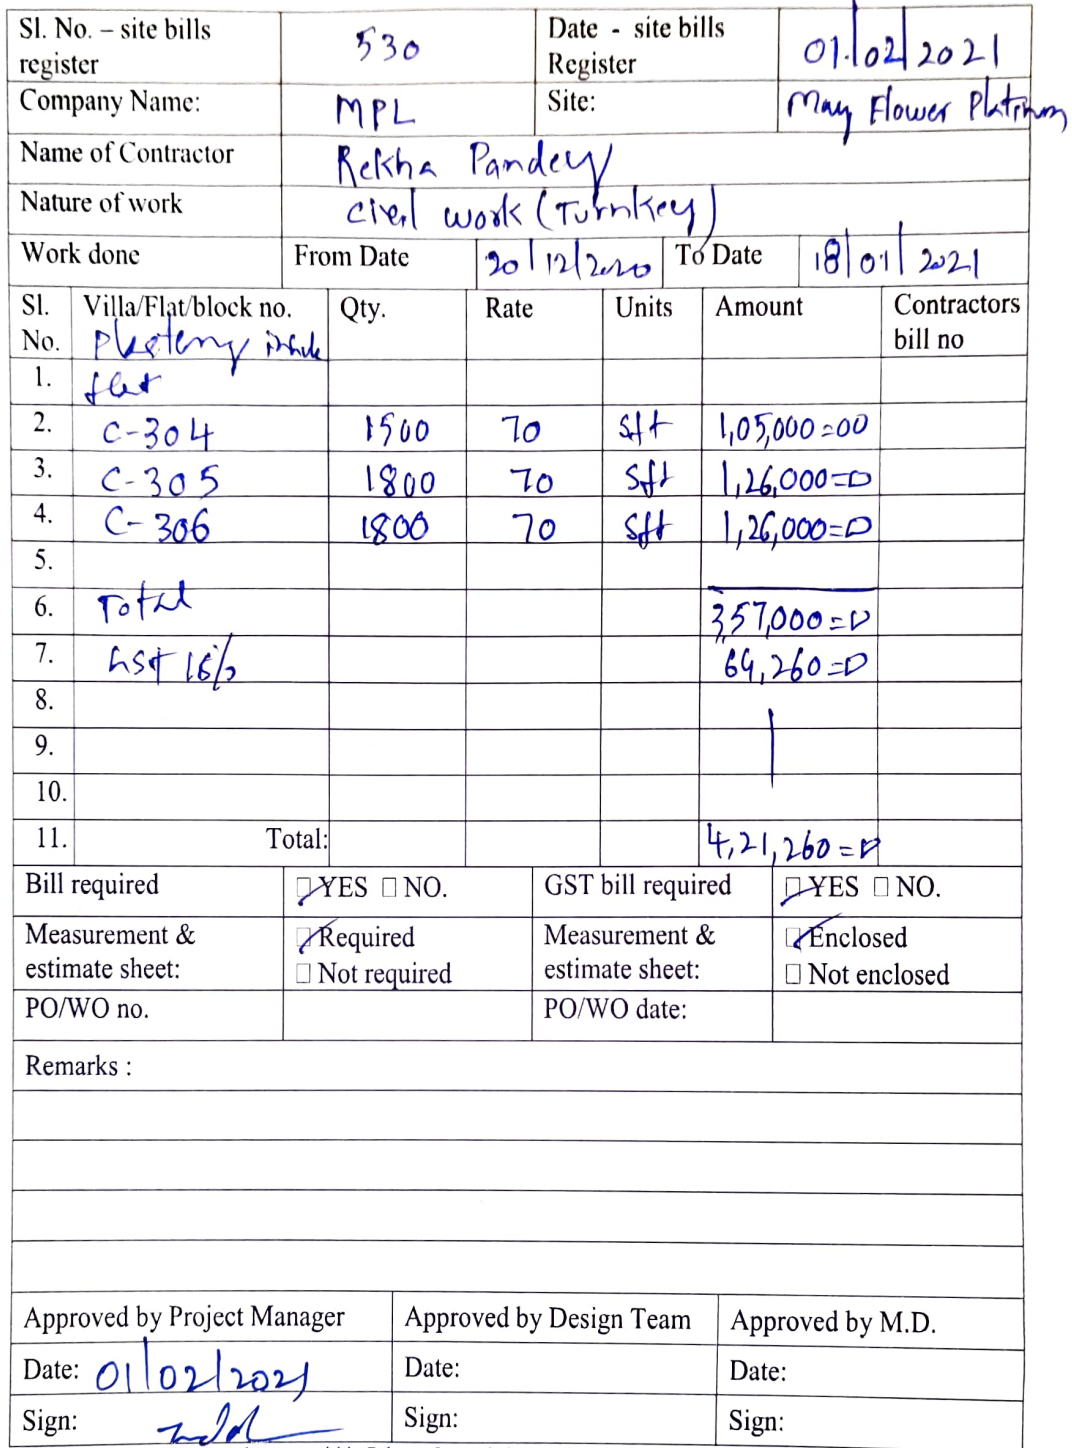 Sl. No. – site bills register 530 Date - site bills Register 01/02/2021
Company Name: MPL Site: May Flower Platinum
Name of Contractor Rekha Pandey
Nature of work Civil work (Turnkey)
Work done From Date 20/12/2020 To Date 18/01/2021
Sl. No. Villa/Flat/block no. Qty. Rate Units Amount Contractors bill no
Plasteny inside
1. flat
2. C-304 1500 70 Sft 1,05,000=00
3. C-305 1800 70 Sft 1,26,000=0
4. C-306 1800 70 Sft 1,26,000=0
5.
6. Total 3,57,000=0
7. GST 18% 64,260=0
8.
9.
10.
11. Total: 4,21,260=0
Bill required ☑ YES ☐ NO. GST bill required ☑ YES ☐ NO.
Measurement & estimate sheet: ☑ Required ☐ Not required Measurement & estimate sheet: ☑ Enclosed ☐ Not enclosed
PO/WO no. PO/WO date:
Remarks :
Approved by Project Manager Approved by Design Team Approved by M.D.
Date: 01/02/2021 Date: Date:
Sign: Sign: Sign: